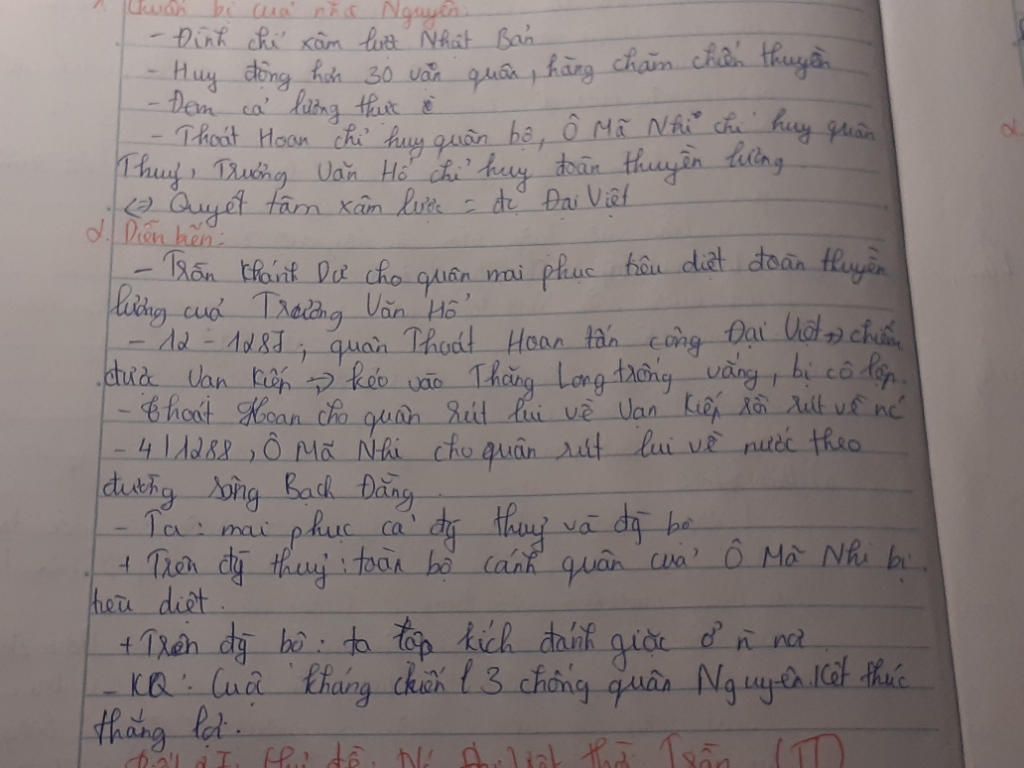 Chuẩn bị của nhà Nguyên
- Đình chỉ xâm lược Nhật Bản
- Huy động hơn 30 vạn quân, hàng chăm chiến thuyền
- Đem cả lương thực
- Thoát Hoan chỉ huy quân bộ, Ô Mã Nhi chỉ huy quân
Thuỷ, Trương Văn Hổ chỉ huy đoàn thuyền lương
<=> Quyết tâm xâm lược = đc Đại Việt
d. Diễn biến:
- Trần Khánh Dư cho quân mai phục tiêu diệt đoàn thuyền
lương của Trương Văn Hổ
- 12 - 1287, quân Thoát Hoan tấn công Đại Việt => chiếm
được Vạn Kiếp => kéo vào Thăng Long trống vắng, bị cô lập.
- Thoát Hoan cho quân rút lui về Vạn Kiếp rồi rút về nc
- 4/1288, Ô Mã Nhi cho quân rút lui về nước theo
đường sông Bạch Đằng
- Ta: mai phục cả đg thuỷ và đg bộ
+ Trên đg thuỷ: toàn bộ cánh quân của Ô Mã Nhi bị
tiêu diệt.
+ Trên đg bộ: ta tập kích đánh giặc ở n nơi
- KQ: Cuộc kháng chiến l 3 chống quân Nguyên kết thúc
thắng lợi.
thời Trần (II)